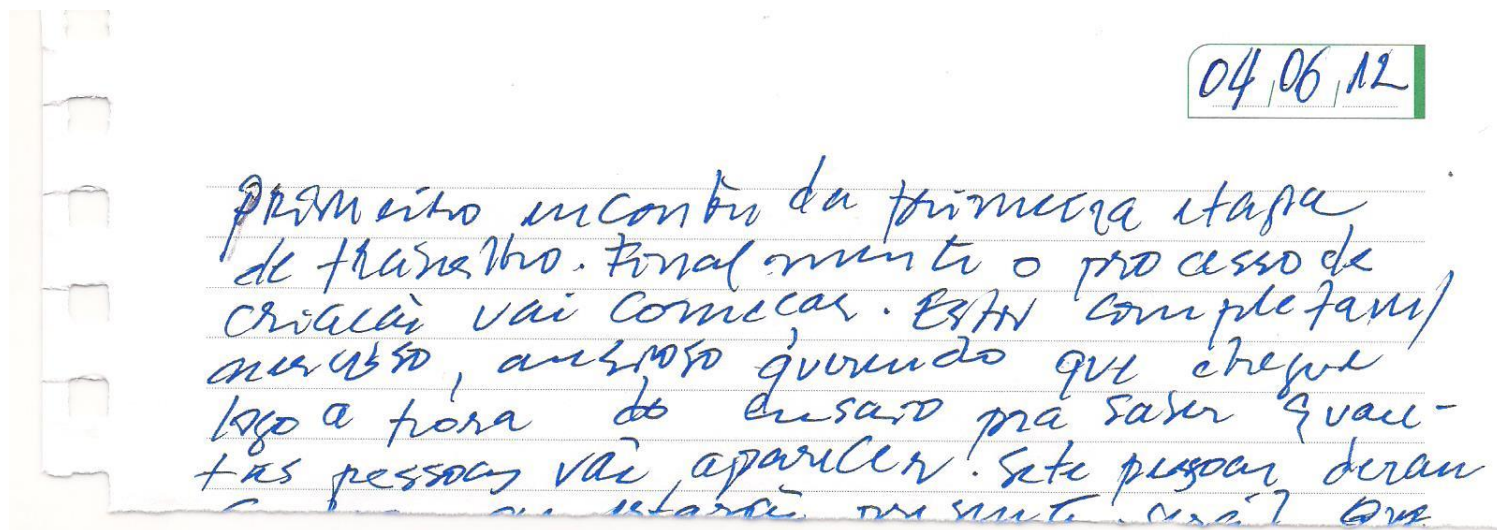 04/06/12
Primeiro encontro da primeira etapa
de trabalho. Finalmente o processo de
criação vai começar. Estou completam/
nervoso, ansioso querendo que chegue
logo a hora do ensaio pra saber quan-
tas pessoas vão aparecer. Sete pessoas deram
estarão presente. Será? Que